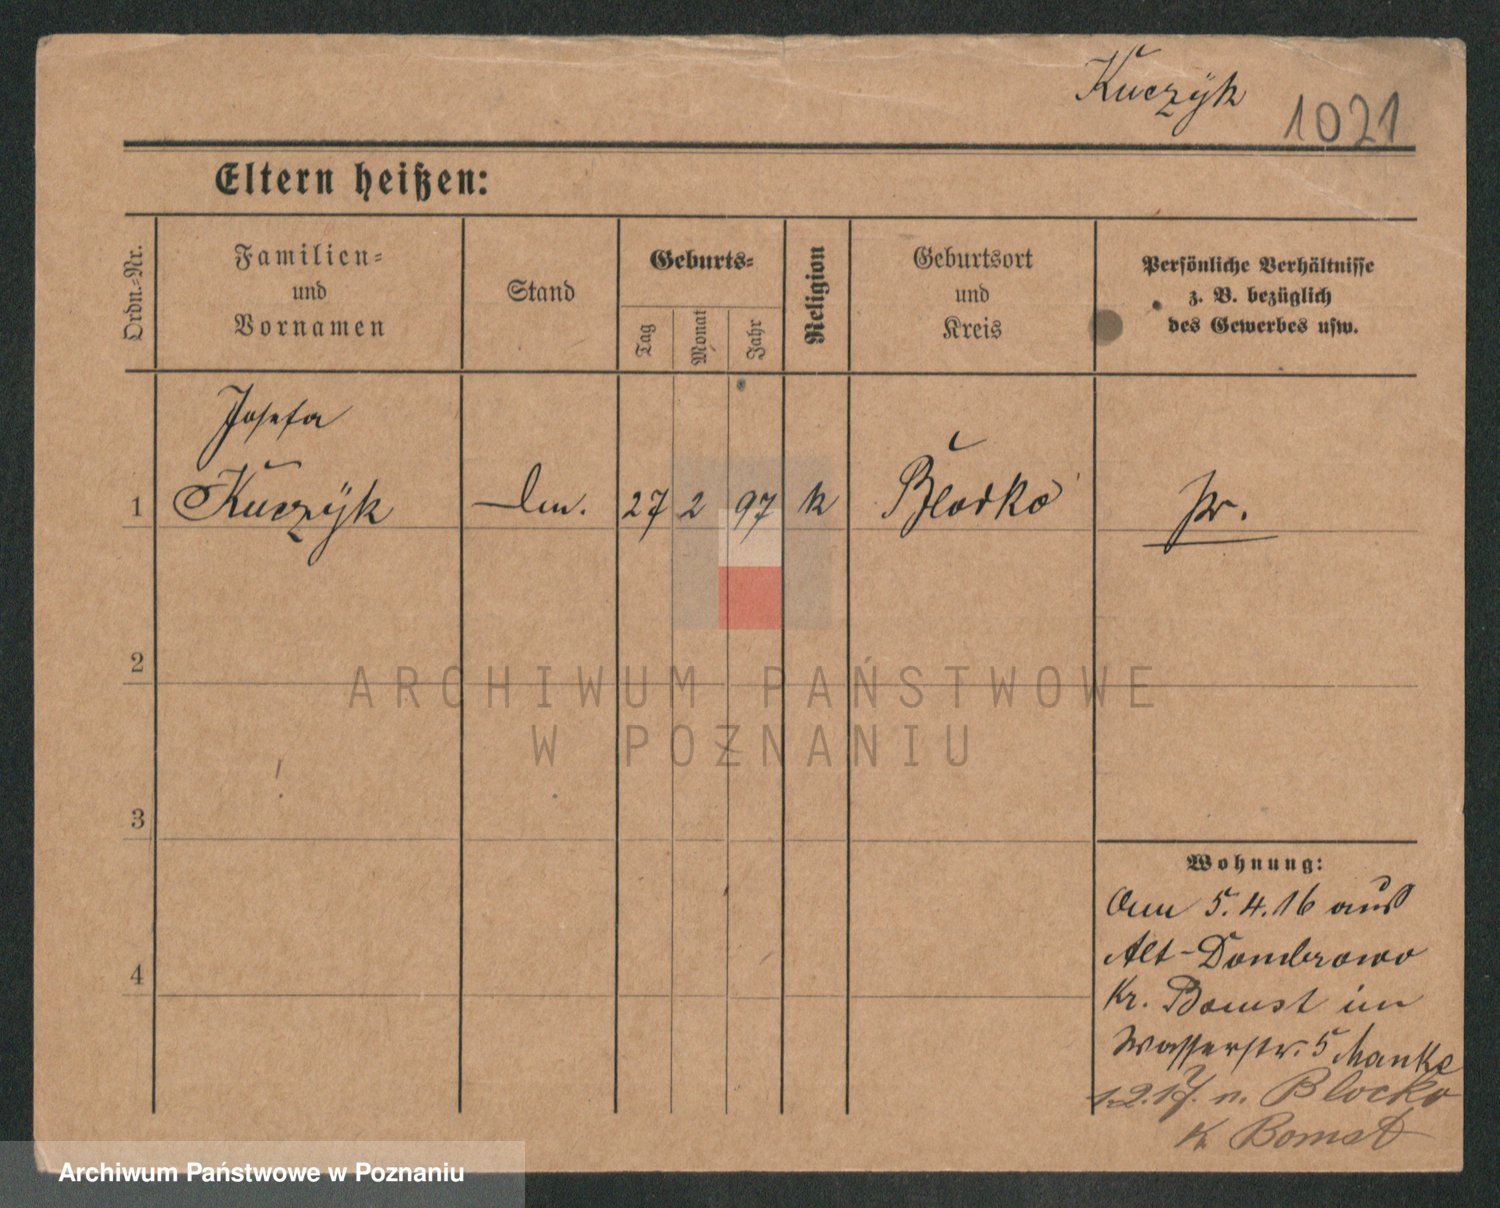 Kuczÿk
1021
Eltern heißen:
Ordn.=Nr.
Familien=
und
Vornamen
Stand
Geburts=
Tag
Monat
Jahr
Religion
Geburtsort
und
Kreis
Persönliche Verhältnisse
z. B. bezüglich
des Gewerbes usw.
Josefa
1 Kuczÿk 27 2 97 k Blocko pr.
2
3
4
Wohnung:
5.4.16 aus
Alt-Dombrowo
Kr. Bomst im
Wasserstr. 5 Manke
1.2.17. n. Blocko
K Bomst
ARCHIWUM PAŃSTWOWE
W POZNANIU
Archiwum Państwowe w Poznaniu